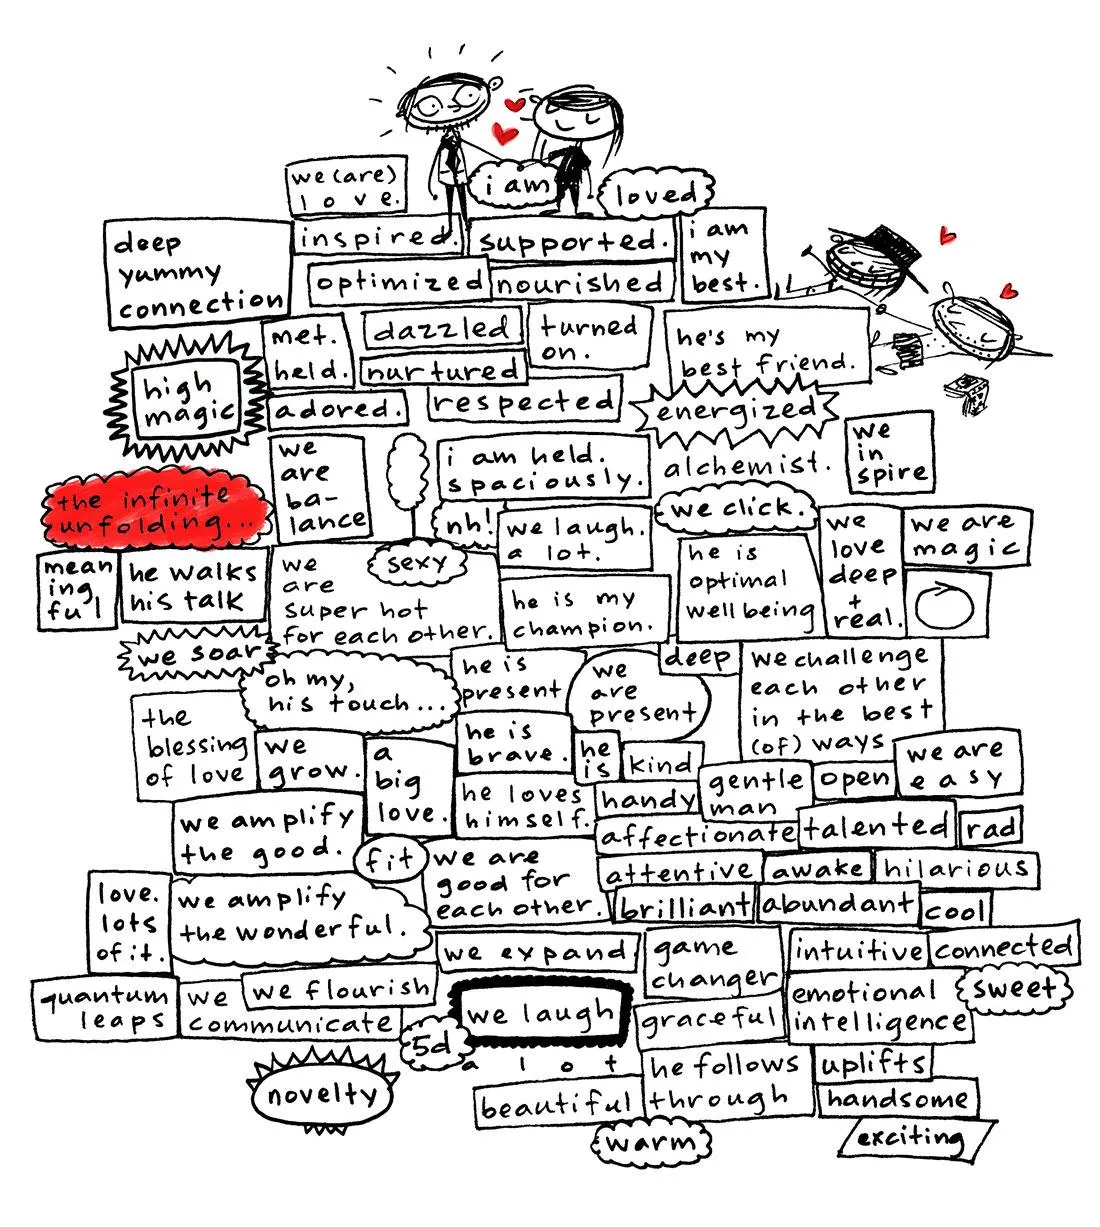 we (are)
love.
i am
loved
deep
yummy
connection
inspired.
supported.
i am
my
best.
optimized
nourished
met.
held.
dazzled
turned
on.
he's my
best friend.
nurtured
high
magic
adored.
respected
energized
we
in
spire
we
are
ba-
lance
i am held.
spaciously.
alchemist.
the infinite
unfolding...
nh!
we laugh.
a lot.
we click.
we
love
deep
+
real.
we are
magic
mean
ing
ful
he walks
his talk
we
are
super hot
for each other.
sexy
he is
optimal
well being
he is my
champion.
we soar
oh my,
his touch...
he is
present
we
are
present
deep
we challenge
each other
in the best
(of) ways
the
blessing
of love
we
grow.
a
big
love.
he is
brave.
he
is
kind
gentle
man
open
we are
easy
he loves
himself.
handy
we amplify
the good.
fit
affectionate
talented
rad
we are
good for
each other.
attentive
awake
hilarious
love.
lots
of it.
we amplify
the wonderful.
brilliant
abundant
cool
we expand
game
changer
intuitive
connected
quantum
leaps
we
communicate
we flourish
we laugh
a lot
graceful
emotional
intelligence
sweet
5d
novelty
he follows
through
uplifts
beautiful
handsome
warm
exciting